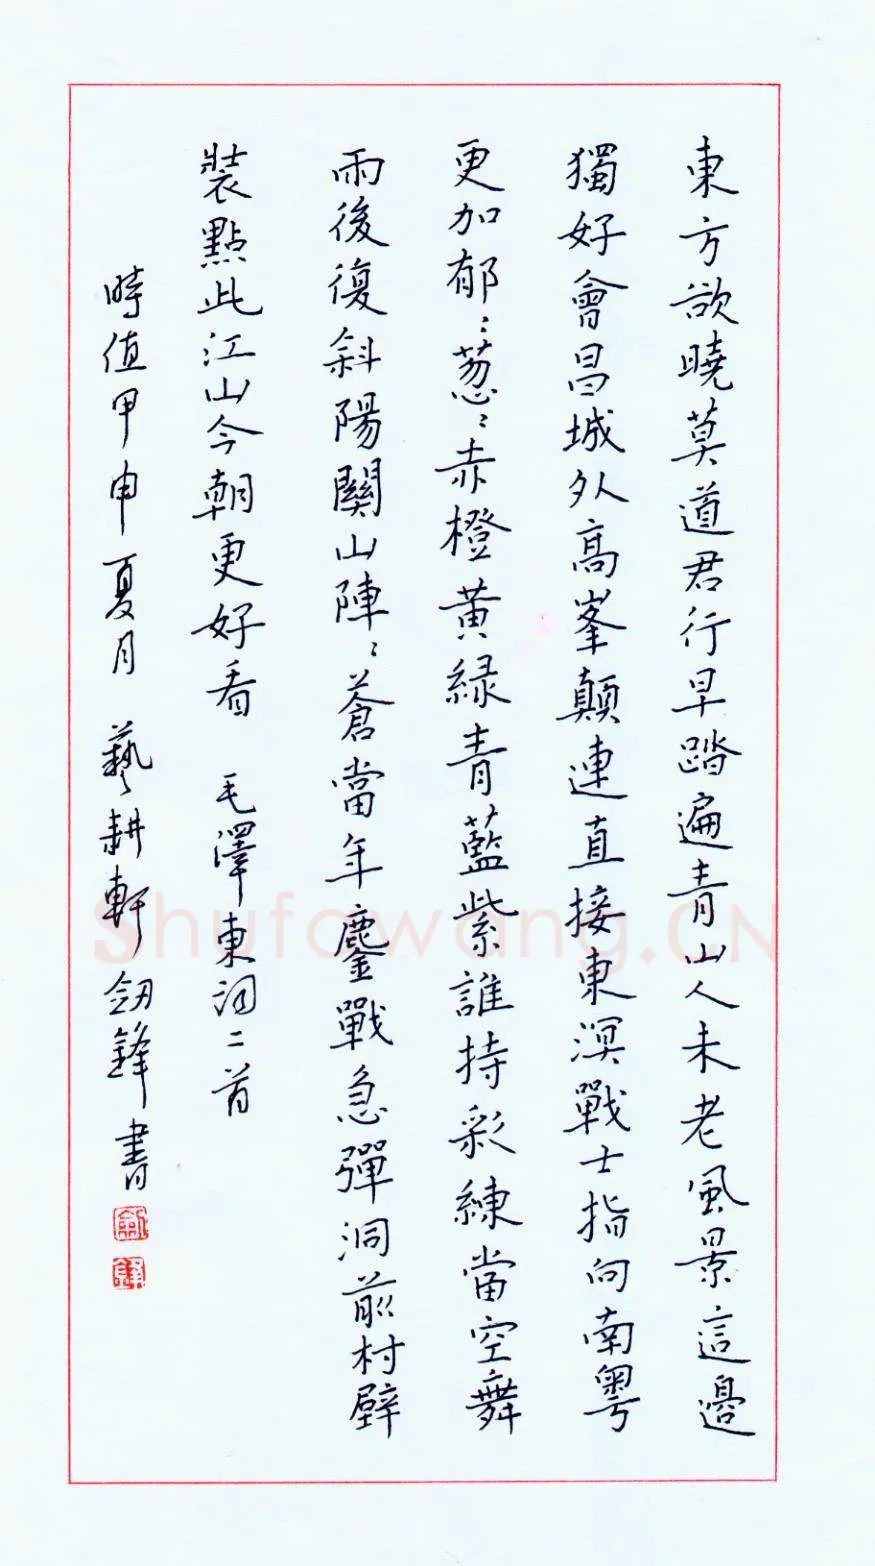 東方欲曉莫道君行早踏遍青山人未老風景這邊
獨好會昌城外高峯顛連直接東溟戰士指向南粵
更加郁〻葱〻赤橙黄緑青藍紫誰持彩練當空舞
雨後復斜陽關山陣〻蒼當年鏖戰急彈洞前村壁
裝點此江山今朝更好看 毛澤東詞二首
時值甲申夏月 藝耕軒劍鋒書
劍
鋒
Shufawang.CN